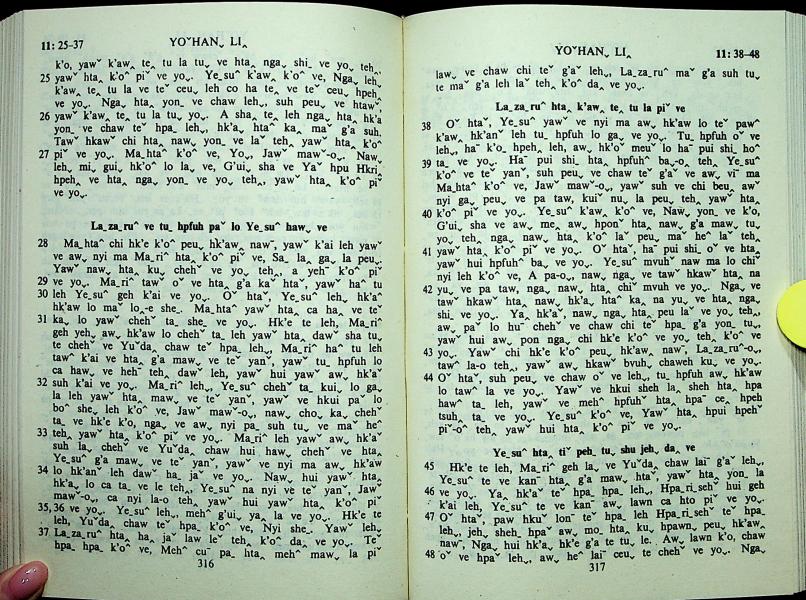 11: 25–37 YOˇHAN˯ LI˰
k'o, yawˇ k'aw˰ te˰ tu la tu˯ ve hta˰ nga˯ shi˗ ve yo˯ teh˰
25 yawˇ hta˰ k'oˆ piˇ ve yo˯. Ye˗suˆ k'aw˰ k'oˆ ve, Nga˯ leh˰
k'aw˰ te˰ tu la ve teˇ ceu˯ leh co ha te˰ ve teˇ ceu˯ hpeh˰
ve yo˯. Nga˯ hta˰ yon˰ ve chaw leh˯, suh peu˯ ve htawˇ
26 yawˇ k'aw˰ te˰ tu la tu˯ yo˯. A sha˰ te˰ leh nga˯ hta˰ hk'a
yon˰ ve chaw teˇ hpa˗ leh˯, hk'a˰ htaˆ ka˰ maˇ g'a suh.
Tawˇ hkawˇ chi hta˰ naw˯ yon˰ ve laˇ teh˰ yawˇ hta˰ k'oˆ
27 piˇ ve yo˯. Ma˗htaˆ k'oˆ ve, Yo˯, Jawˇ mawˇ-o˯. Naw˯
leh˯ mi˯ gui˯ hk'oˇ lo la˯ ve, G'ui˯ sha ve Yaˇ hpu Hkri˗
hpeh˰ ve hta˰ nga˯ yon˰ ve yo˯ teh˰, yawˇ hta˰ k'oˆ piˇ
ve yo˯.
La˗za˗ruˆ ve tu˰ hpfuh paˇ lo Ye˗suˆ haw˯ ve
28 Ma˗htaˆ chi hk'e k'oˆ peu˯ hk'aw˰ nawˉ, yawˇ k'ai leh yawˇ
ve aw˯ nyi ma Ma˗riˆ hta˰ k'oˆ pi ve, Sa˯ la˰ ga˰ la peu˯
Yawˇ naw˯ hta˰ ku˰ chehˇ ve yo˯ teh˰, a yehˆ k'oˆ piˇ
29 ve yo˯. Ma˗riˆ taw oˇ ve hta˰ g'a kaˆ htaˇ, yawˇ haˆ tu
30 leh Ye˗suˆ geh k'ai ve yo˯. Oˇ htaˇ, Ye˗suˆ leh˯ hk'aˆ
hk'aw lo maˇ lo˯-e she˗. Ma˗htaˆ yawˇ hta˰ ca ha˰ ve teˇ
31 ka˰ lo yawˇ chehˇ ta˗ she ve yo˯. Hk'e te leh, Ma˗riˆ
geh yeh˯ aw˯ hk'aw lo chehˇ ta˰ leh yawˇ hta˰ dawˇ sha tu˯
te chehˇ ve Yuˇda˯ chaw te˰ hpa˰ leh˯, Ma˗riˆ haˆ tu leh
tawˆ k'ai ve hta˰ g'a maw˰ ve teˇ yanˇ, yawˇ tu˰ hpfuh lo
ca haw˰ ve hehˉ teh˰ dawˇ leh, yawˇ hui yawˇ aw˯ hk'aˇ
32 suh k'ai ve yo˯. Ma˗riˆ leh˯, Ye˗suˆ chehˇ ta˰ kui˯ lo ga˰
la leh yawˇ hta˰ maw˰ ve teˇ yanˇ, yawˇ ve hkui paˇ lo
boˆ she˰ leh k'oˆ ve, Jawˇ mawˇ-o˯, naw˯ cho˰ ka˰ chehˇ
ta˰ ve hk'e k'o, nga˯ ve aw˯ nyi pa˰ suh tu˯ ve maˇ heˆ
33 teh˰ yawˇ hta˰ k'oˆ piˇ ve yo˯. Ma˗riˆ leh yawˇ aw˯ hk'aˇ
suh la˰ chehˇ ve Yuˇda˯ chaw hui haw˰ chehˇ ve hta˰
Ye˗suˆ g'a maw˰ ve teˇ yanˇ, yawˇ ve nyi ma aw˯ hk'aw
34 lo hk'anˇ leh dawˇ ha˰ jaˇ ve yo˯. Naw˯ hui yawˇ hta˰
hk'a˰ lo ca ta˰ ve le teh˰, Ye˗suˆ na nyi ve te yanˇ, Jawˇ
mawˇ-o˯, ca nyi la-o teh˰ yawˇ hui yawˇ hta˰ k'oˆ pi
35, 36 ve yo˯. Ye˗suˆ leh˯, mehˇ g'ui˯ ya˰ la ve yo˯. Hk'e te
leh, Yuˇda˯ chaw teˇ hpaˆ k'oˆ ve, Nyi she˰. Yawˇ leh˯
37 La˗za˗ruˆ hta˰ ha˰ jaˇ law leˇ teh˰ k'oˆ da˰ ve yo˯. Teˇ
hpa˰ hpa˰ k'oˆ ve, Mehˇ cuˉ pa˰ hta˰ mehˇ maw˰ la piˇ
316
YOˇHAN˯ LI˰ 11: 38–48
law˯ ve chaw chi teˇ g'aˇ leh˯, La˗za˗ruˆ maˇ g'a suh tu˯
te maˇ g'a leh laˇ teh˰ k'oˆ da˰ ve yo˯.
La˗za˗ruˆ hta˰ k'aw˰ te˰ tu la piˇ ve
38 Oˇ htaˇ, Ye˗suˆ yawˇ ve nyi ma aw˯ hk'aw lo teˇ pawˆ
k'aw˰ hk'anˇ leh tu˰ hpfuh lo ga˰ ve yo˯. Tu˰ hpfuh oˇ ve
leh˯, haˉ k'o˰ hpeh˰ leh, aw˯ hk'oˇ meuˇ lo haˉ pui shi˰ hoˆ
39 ta˰ ve yo˯. Haˉ pui shi˰ hta˰ hpfuhˆ ba˯-o˰ teh˰ Ye˗suˆ
k'oˆ ve teˇ yanˇ, suh peu˯ ve chaw teˇ g'aˇ ve aw˯ viˉ ma
Ma˗htaˆ k'oˆ ve, Jawˇ mawˇ-o˯, yawˇ suh ve chi beu˰ awˇ
nyi ga˰ peu˯ ve pa taw˯ kuiˇ nu˰ la peu˯ teh˰ yawˇ hta˰
40 k'oˆ piˇ ve yo˯. Ye˗suˆ k'aw˰ k'oˆ ve, Naw˯ yon˰ ve k'o,
G'ui˯ sha ve aw˯ me˰ aw˯ hponˇ hta˰ naw˯ g'a maw˰ tu˯
yo˯ teh˰ nga˯ naw˯ hta˰ k'oˆ laˇ peu˯ maˇ heˆ laˇ teh˰
41 yawˇ hta˰ k'oˆ piˇ ve yo˯. Oˇ htaˇ, haˉ pui shi˰ oˇ ve hta˰
yawˇ hui hpfuhˆ ba˯ ve yo˯. Ye˗suˆ mvuhˇ naw ma lo chiˆ
nyi leh k'oˆ ve, A pa-o˯, naw˯ nga˯ ve tawˇ hkawˇ hta˰ na
42 yu˯ ve pa taw˯ nga˯ naw˯ hta˰ chiˇ mvuh ve yo˯. Nga˯ ve
tawˇ hkawˇ hta˰ naw˯ hk'a˰ htaˆ ka˰ na yu˰ ve hta˰ nga˯
shi˗ ve yo˯. Ya˰ hk'aˇ, naw˯ nga˯ hta˰ peu˯ laˇ ve yo˯ teh˰
aw˯ paˇ lo huˉ chehˇ ve chaw chi teˇ hpa˰ g'a yon˰ tu˯,
yawˇ hui aw˯ pon nga˯ chi hk'e k'oˆ ve yo˯ teh˰ k'oˆ ve
43 yo˯. Yawˇ chi hk'e k'oˆ peu˯ hk'aw˰ nawˉ, La˗za˗ruˆ-o˯,
tawˆ la-o teh˰, yawˇ aw˯ hkawˇ bvuh˯ chaweh ku˯ ve yo˯.
44 Oˇ htaˇ, suh peu˯ ve chaw oˇ ve leh˯, tu˰ hpfuh aw˯ hk'aw
lo tawˆ la ve yo˯. Yawˇ ve hkui sheh la˰ sheh hta˰ hpa
hawˇ ta˰ leh, yawˇ ve mehˇ hpfuhˇ hta˰ hpaˉ ce˰ hpeh
tsuh˰ ta˰ ve yo˯. Ye˗suˆ k'oˆ ve, Yawˇ hta˰ hpui hpehˇ
piˇ-oˆ teh˰ yawˇ hui hta˰ k'oˆ piˇ ve yo˯.
Ye˗suˆ hta˰ tiˇ peh˰ tu˯ shu jeh˯ da˰ ve
45 Hk'e te leh, Ma˗riˆ geh la˰ ve Yuˇda˯ chaw laiˉ g'aˇ leh˯,
Ye˗suˆ te ve kanˉ hta˰ g'a maw˰ htaˇ, yawˇ hta˰ yon˰ la
46 ve yo˯. Ya˰ hk'aˇ teˇ hpa˰ hpa˰ leh˯, Hpa˗ri˗sehˇ hui geh
k'ai leh, Ye˗suˆ te ve kanˉ aw˯ lawn ca hto piˇ ve yo˯.
47 Oˇ htaˇ, paw hkuˇ lonˉ teˇ hpa˰ leh Hpa˗ri˗sehˇ teˇ hpa
leh˯, jeh˯ sheh˰ hpaˇ aw˯ mo˰ hta˰ ku˰ hpawn˯ peu˯ hk'aw˰
nawˉ, Nga˯ hui hk'a˰ hk'e g'a te tu˯ le. Aw˯ lawn k'o, chaw
48 oˇ ve hpaˇ leh˯, aw˯ heˆ laiˉ ceu˯ te chehˇ ve yo˯. Nga˯
317